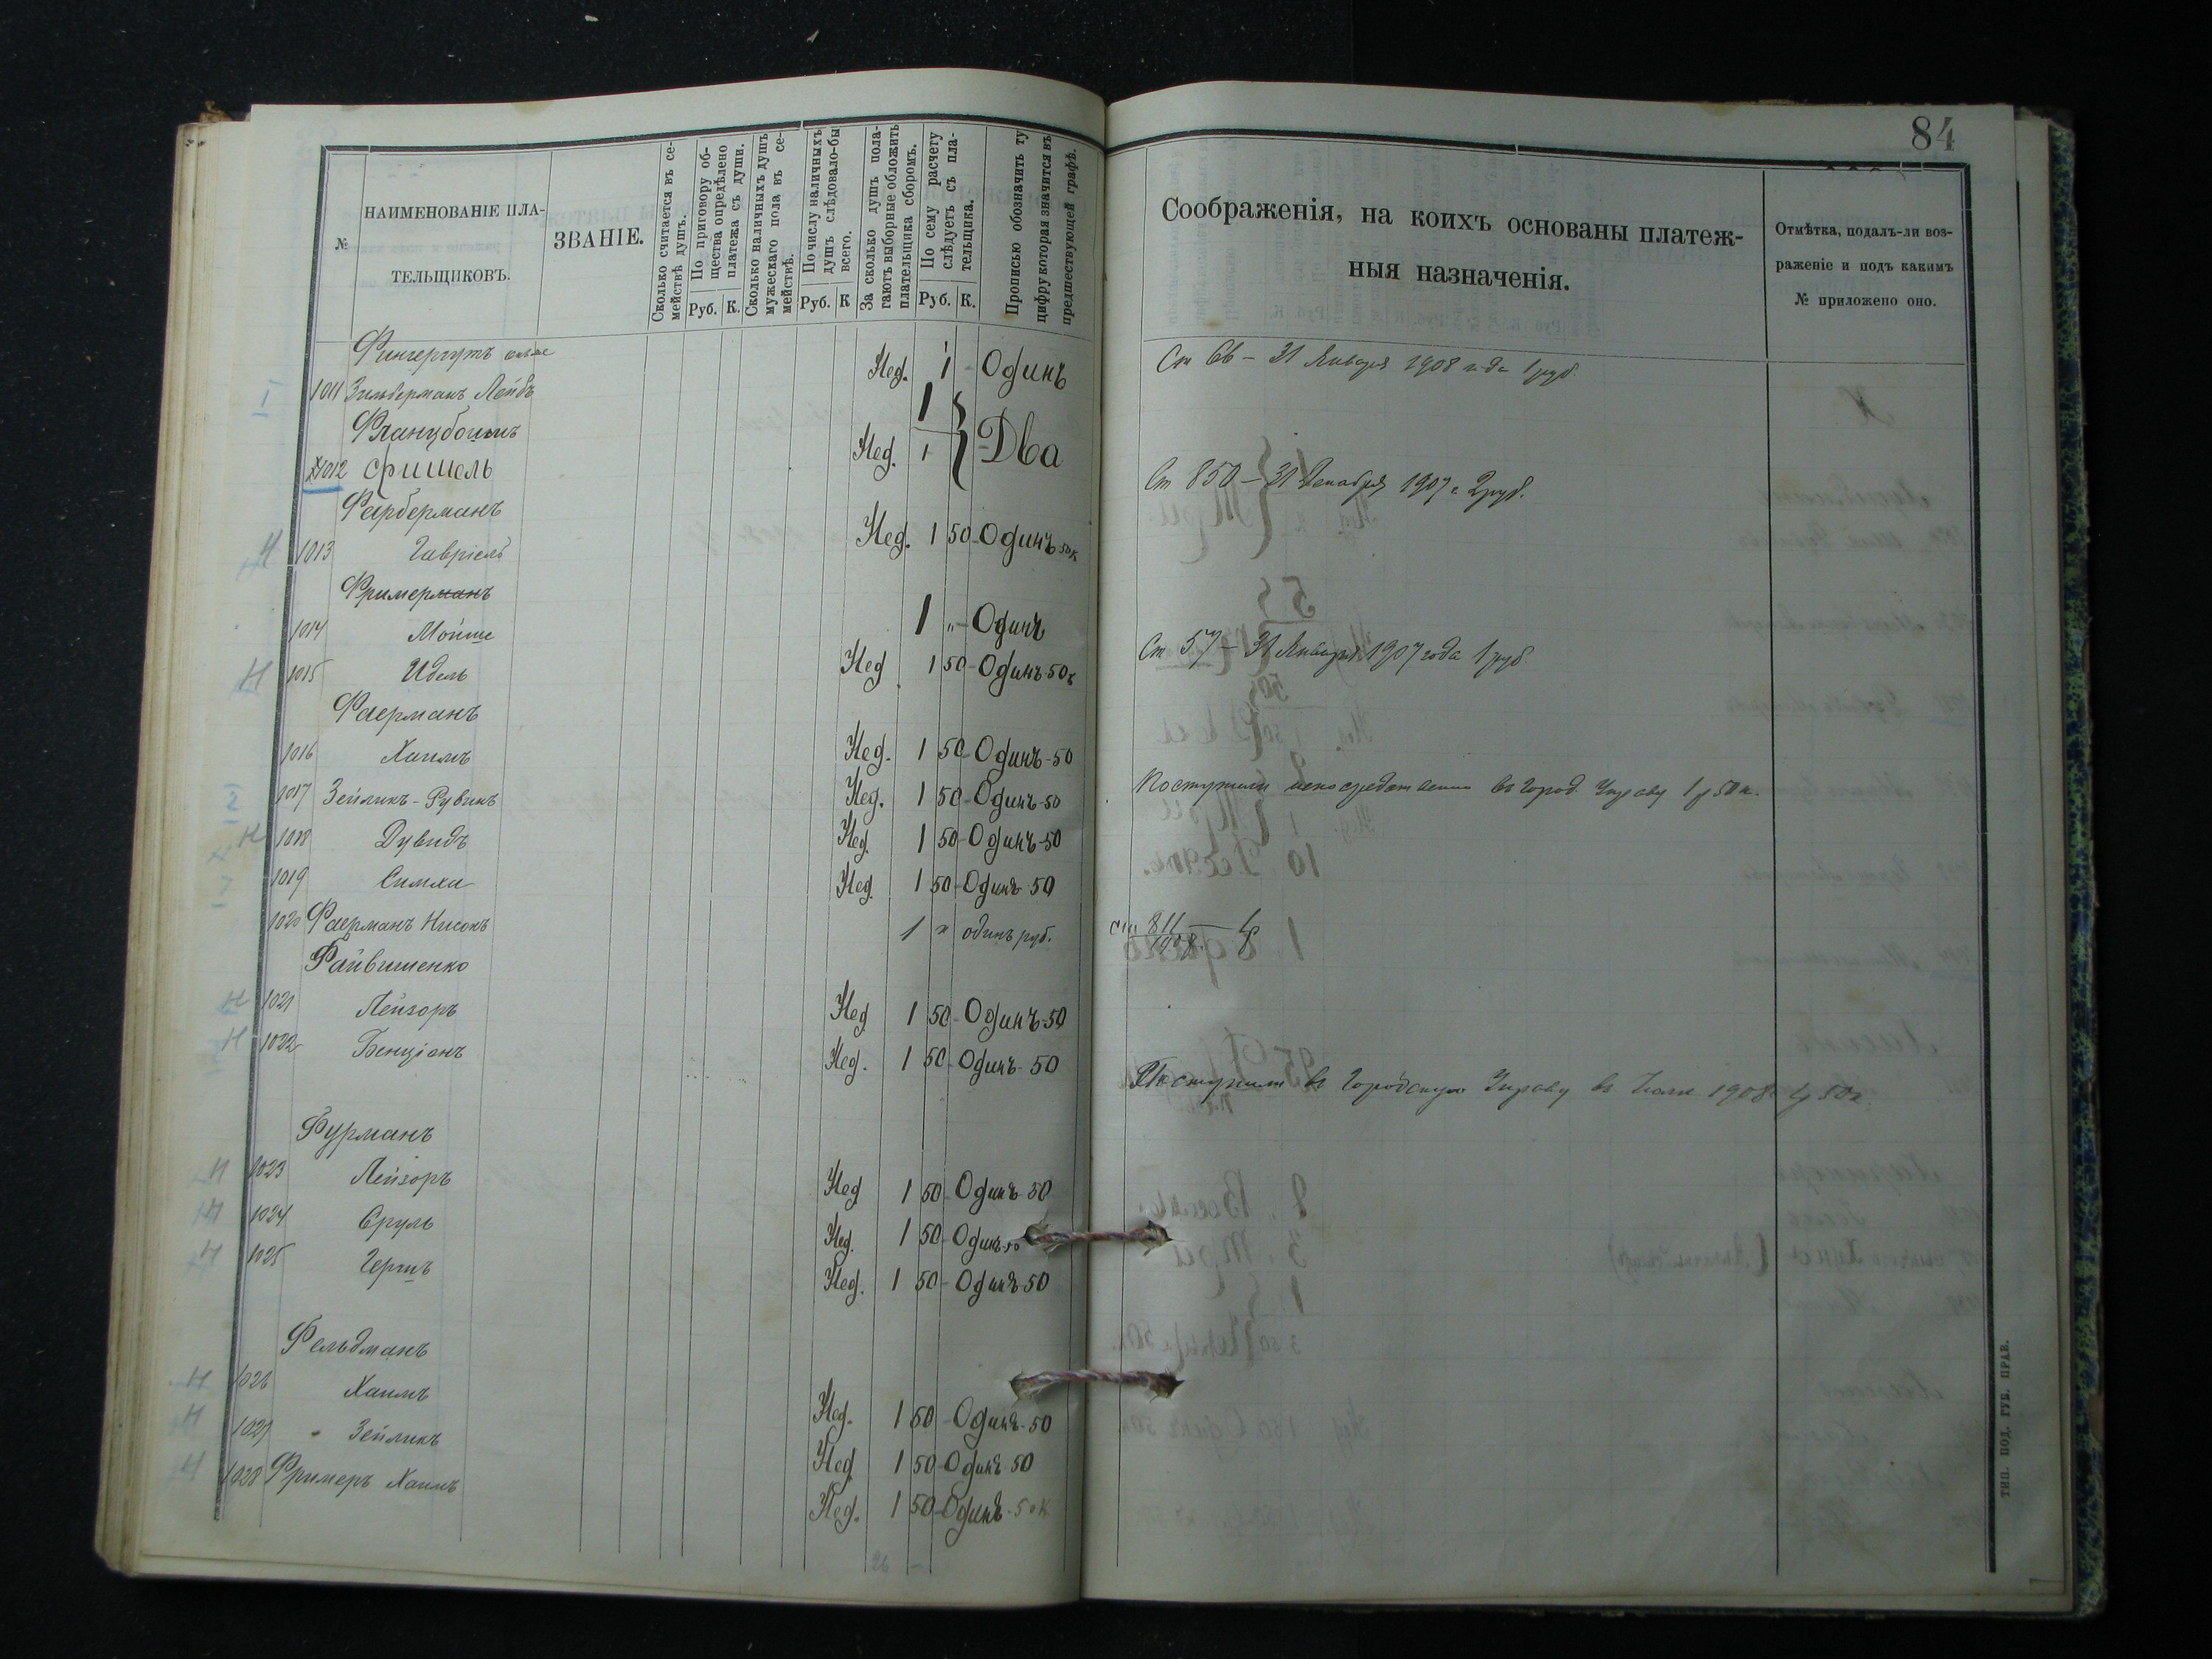 84
№
НАИМЕНОВАНІЕ ПЛА-
ТЕЛЬЩИКОВЪ.
ЗВАНІЕ.
Сколько считается въ се-
мействѣ душъ.
По приговору об-
щества опредѣлено
платежа съ души.
Руб. К.
Сколько наличныхъ душъ
мужескаго пола въ се-
мействѣ.
По числу наличныхъ
душъ слѣдовало-бы
всего.
Руб. К
За сколько душъ пола-
гаютъ выборные обложить
плательщика сборомъ.
По сему расчету
слѣдуетъ съ пла-
тельщика.
Руб. К.
Прописью обозначить ту
цифру которая значится въ
предшествующей графѣ.
Соображенія, на коихъ основаны платеж-
ныя назначенія.
Отмѣтка, подалъ-ли воз-
раженіе и подъ какимъ
№ приложено оно.
Фингергутъ
1011 Зильберманъ Лейбъ Нед. 1 - Одинъ Ст 66 - 31 Января 1908 года 1 руб.
Францбоимъ 1
1012 Фишель Нед. 1 Два Ст 850 - 31 Декабря 1907 г 2 руб.
Фарберманъ
Н 1013 Гавріелъ Нед. 1 50 - Одинъ 50 к
Фримерманъ
1014 Мойше 1 " - Одинъ Ст 57 - 31 Января 1907 года 1 руб.
Н 1015 Идель Нед 1 50 - Одинъ 50 к
Фаерманъ
1016 Хаимъ Нед. 1 50 - Одинъ - 50
1017 Зейликъ - Рувинъ Нед. 1 50 - Одинъ - 50 Поступили непосредственно въ Город. Управу 1 р 50 к.
Н 1018 Дувидъ Нед. 1 50 - Одинъ - 50
1019 Симха Нед. 1 50 - Одинъ 50
1020 Фаерманъ Нисонъ 1 " одинъ руб. ст 811
1908
Файвишенко
Н 1021 Лейзоръ Нед 1 50 - Одинъ - 50
Н 1022 Бенціонъ Нед. 1 50 - Одинъ - 50 Поступили въ Городскую Управу въ 1908 1 р 50 к.
Фурманъ
Н 1023 Лейзоръ Нед 1 50 - Одинъ 50
Н 1024 Сруль Нед. 1 50 - Одинъ - 50
Н 1025 Гершъ Нед. 1 50 - Одинъ - 50
Фельдманъ
Н 1026 Хаимъ Нед. 1 50 - Одинъ - 50
Н 1027 Зейликъ Нед 1 50 - Одинъ 50
Н 1028 Фримеръ Хаимъ Нед. 1 50 - Одинъ - 50 к
26 -
ТИП. ПОД. ГУБ. ПРАВ.